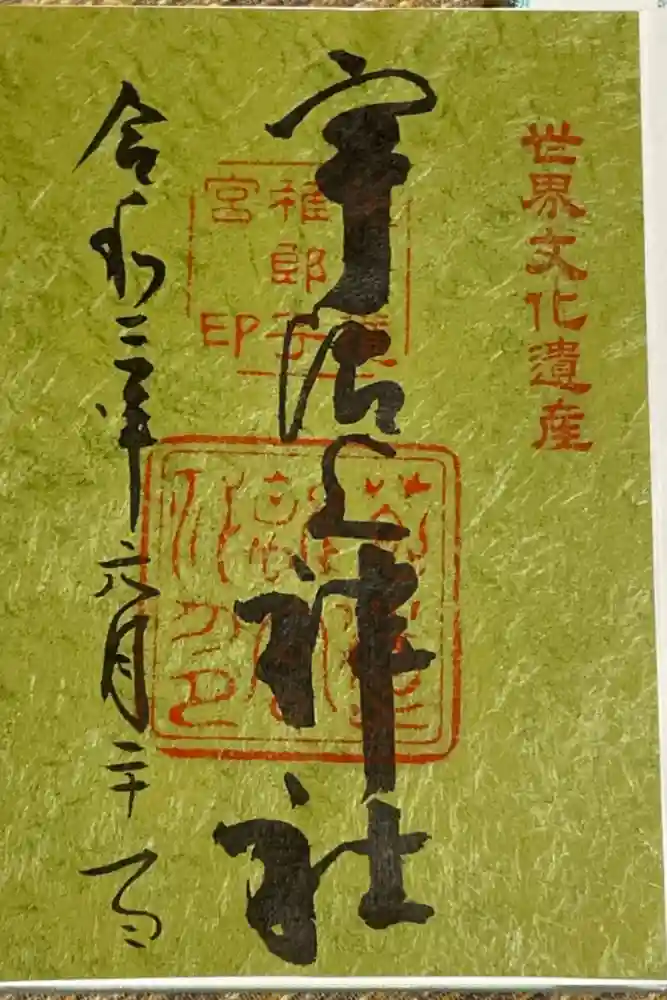 世界文化遺産
宇治上神社
令和三年六月二十一日
稚郎子
宮印